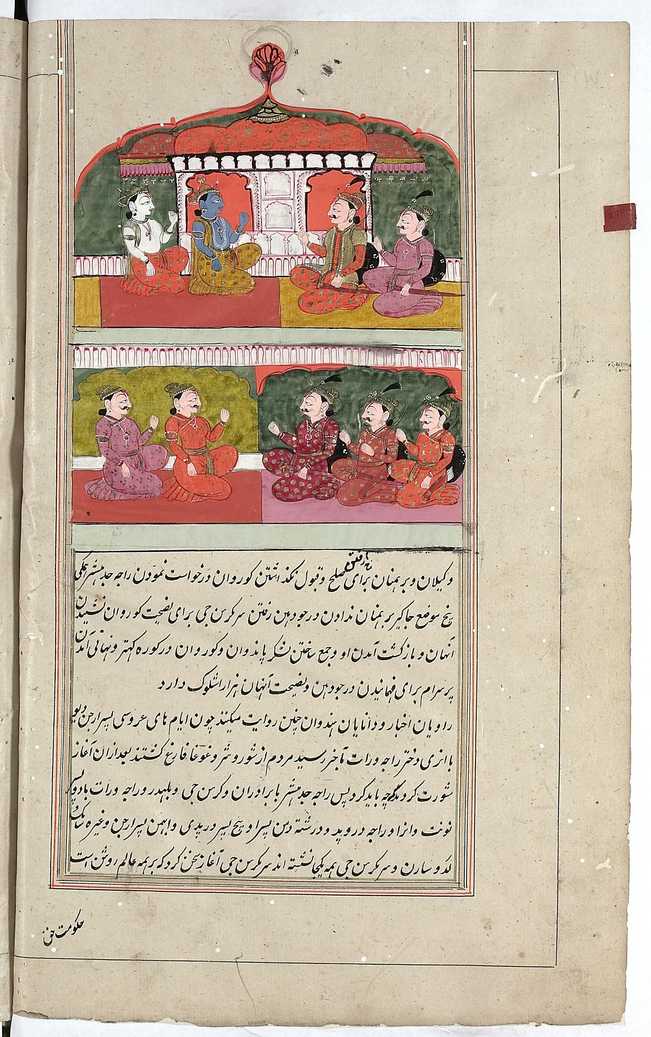 وکیلان و برهمنان برای رفتن صلح و قبول نکذاشتن کوروان درخواست نمودن راجه جدهشتر
پنج موضع جاکیر برهمنان ندادن درجودهن رفتن سرکرسن جی برای نصیحت کوروان نشنیدن
آنهان و بازکشت آمدن او و جمع ساختن لشکر پاندوان و کوروان در کوره کهتر و آمدن
پرسرام برای فهمانیدن درجودهن و نصیحت آنهان هزار اشلوک دارد
راویان اخبار و دانایان هندوان چنین روایت میکنند چون ایام های عروسی پسر ارجن
با دختر راجه ورات بآخر رسید مردم از شور و شر و غوغا فارغ کشتند بعد ازان آغاز
مشورت کردند که چه باید کرد پس راجه جدهشتر با برادران و کرسن جی و بلبهدر و راجه ورات با دو پسر
و راجه دروپد و درشته دمن پسر او و پنج پسر دروپدی و ابهمن پسر ارجن وغیره
و سارن و سرکرسن جی همه یکجا نشسته اند سرکرسن جی آغاز سخن کرد که بر همه عالم روشن است
حکومت